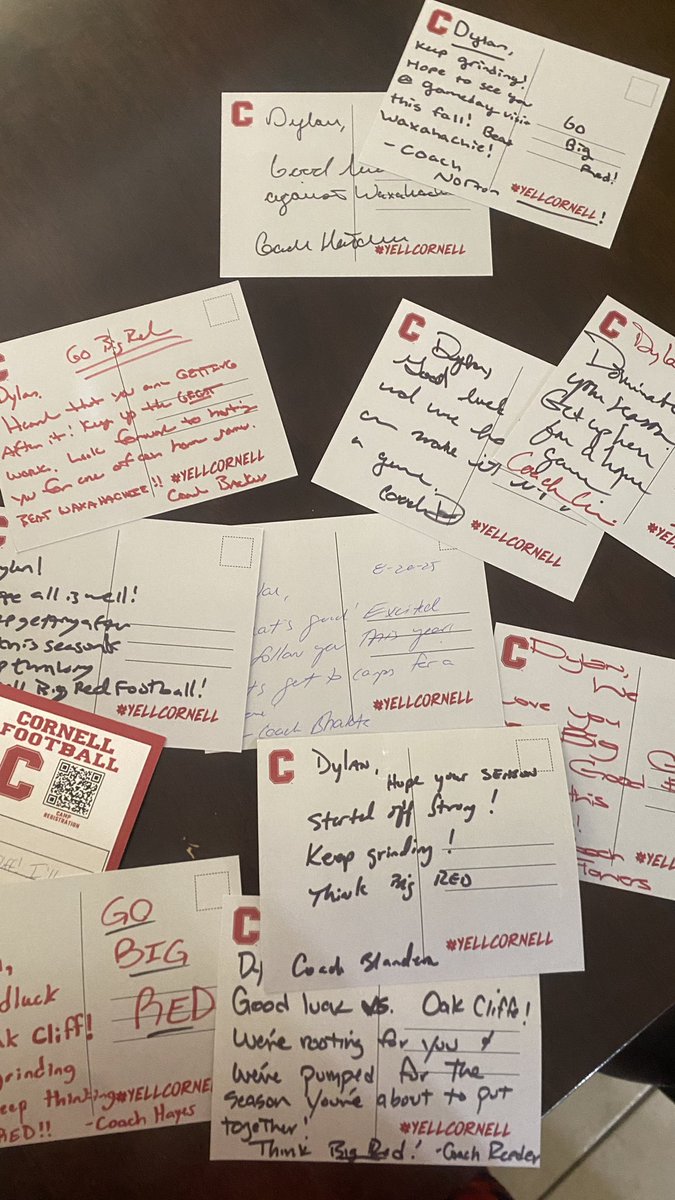 C Dylan,
Keep grinding!
Hope to see you
@ gameday visit
this fall! Beat
Waxahachie!
- Coach
Norton
GO
Big
Red!
#YELLCORNELL!
C Dylan,
Good
against Waxahach
Coach
#YELLCORNELL
GO Big Red
Dylan,
Heard that you are GETTING
After it! Keep up the GREAT
work. Look forward to hosting
you for one of our home games.
BEAT WAXAHACHIE!!
#YELLCORNELL
Coach Backus
C Dylan,
Good luck
and we hope
can make it
a game.
Coach
#YELLCORNELL
C Dylan
Dominate
your season.
Get up here
for a
game
Coach
#YELL
ylan!
pe all is well!
p getting after
this season &
p thinking
ll Big Red Football!
#YELLCORNELL
8-20-25
lan,
at's good! Excited
follow you this year!
t's get to campus for a
ame
- Coach Bhakta
#YELLCORNELL
C Dylan, We
love you
Good
this
!
Coach
#YELL
CORNELL
FOOTBALL
C
CAMP
REGISTRATION
I'll
C Dylan,
Hope your SEASON
Started off Strong!
Keep grinding!
Think Big RED
Coach Blanden
#YELLCORNELL
GO
BIG
RED
dluck
k Cliff!
grinding
eep thinking
RED!!
#YELLCORNEL
-Coach Hayes
Dy
Good luck vs. Oak Cliff!
We're rooting for you &
We're pumped for the
season you're about to put
together!
#YELLCORNELL
Think Big Red! -Coach Reader